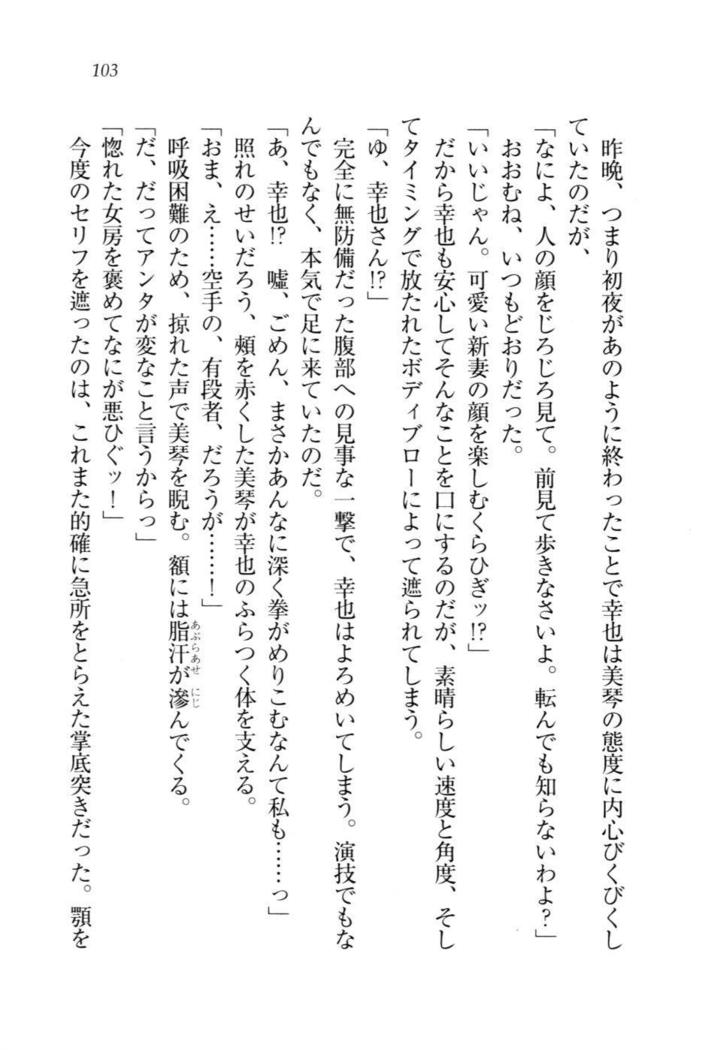 103
昨晩、つまり初夜があのように終わったことで幸也は美琴の態度に内心びくびくし
ていたのだが、
「なによ、人の顔をじろじろ見て。前見て歩きなさいよ。転んでも知らないわよ？」
おおむね、いつもどおりだった。
「いいじゃん。可愛い新妻の顔を楽しむくらひぎッ!?」
だから幸也も安心してそんなことを口にするのだが、素晴らしい速度と角度、そし
てタイミングで放たれたボディブローによって遮られてしまう。
「ゆ、幸也さん!?」
完全に無防備だった腹部への見事な一撃で、幸也はよろめいてしまう。演技でもな
んでもなく、本気で足に来ていたのだ。
「あ、幸也!?　嘘、ごめん、まさかあんなに深く拳がめりこむなんて私も……っ」
照れのせいだろう、頰を赤くした美琴が幸也のふらつく体を支える。
「おま、え……空手の、有段者、だろうが……！」
呼吸困難のため、掠れた声で美琴を睨む。額には脂汗あぶらあせが滲にじんでくる。
「だ、だってアンタが変なこと言うからっ」
「惚れた女房を褒めてなにが悪ひぐッ！」
今度のセリフを遮ったのは、これまた的確に急所をとらえた掌底突きだった。顎を